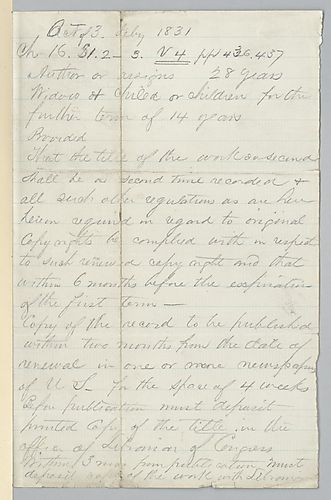 Act of 3. Feby 1831
Ch 16. S1.2 - 3. V 4 pp 436,457
Author or assigns 28 years
Widow & Child or children for the
further term of 14 years
Provided
That the title of the work so second
shall be a second time recorded &
all such other regulations as are here
herein required in regard to original
Copyrights be complied with in respect
to such renewed copyright and that
within 6 months before the expiration
of the first term —
Copy of the record to be published
within two months from the date of
renewal in one or more newspapers
of U S — for the space of 4 weeks
Before publication must deposit
printed copy of the title in the
office of Librarian of Congress
Within 3 mos from publication must
deposit of the work with Librarian